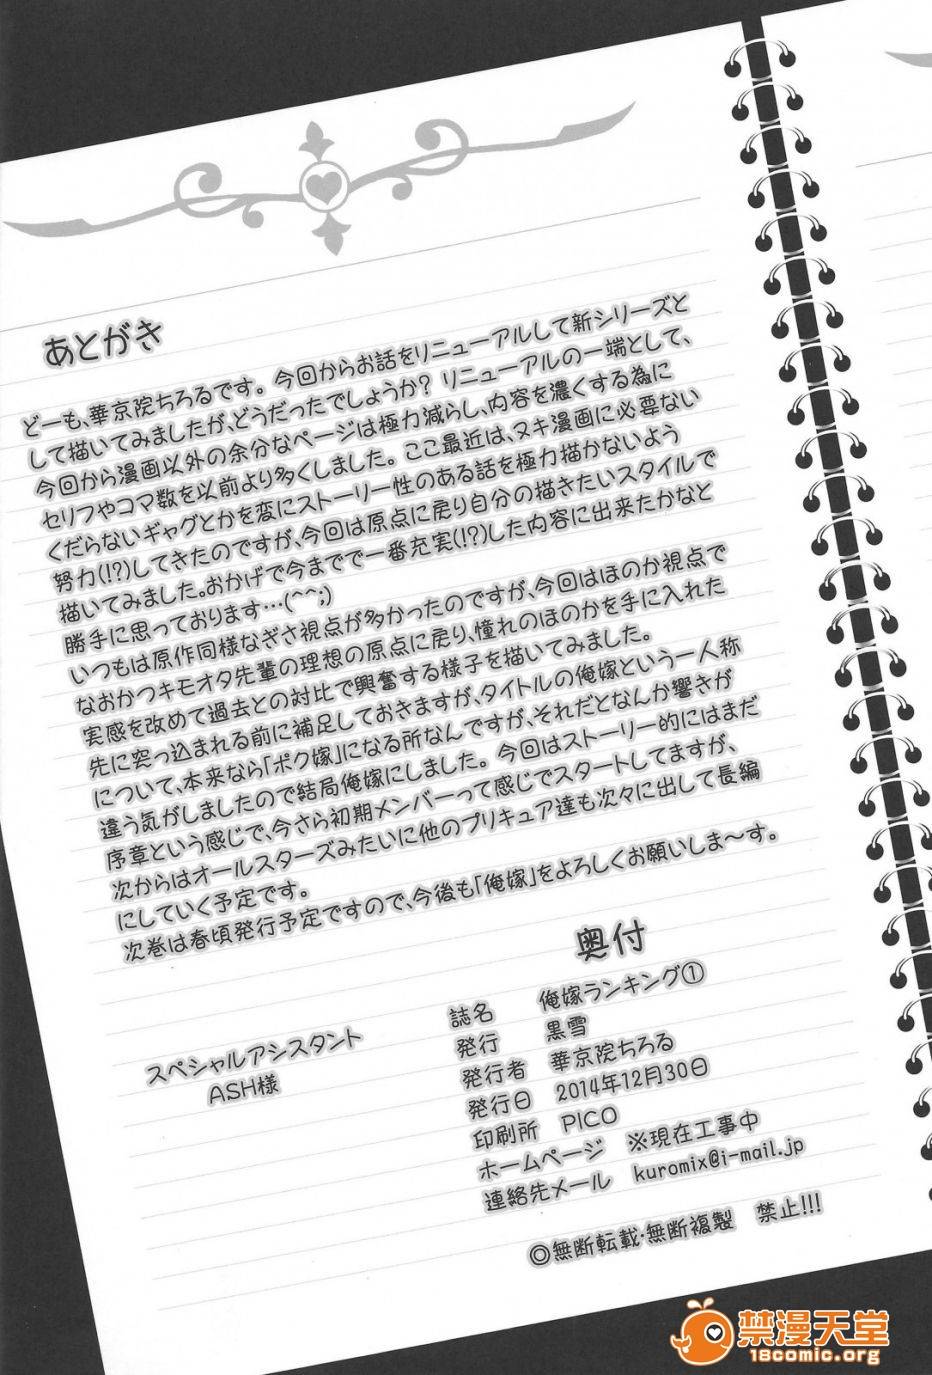 あとがき
どーも、華京院ちろるです。今回からお話をリニューアルして新シリーズと
して描いてみましたが、どうだったでしょうか? リニューアルの一端として、
今回から漫画以外の余分なページは極力減らし、内容を濃くする為に
セリフやコマ数を以前より多くしました。ここ最近は、ヌキ漫画に必要ない
くだらないギャグとかを変にストーリー性のある話を極力描かないよう
努力(!?)してきたのですが、今回は原点に戻り自分の描きたいスタイルで
描いてみました。おかげで今までで一番充実(!?)した内容に出来たかなと
勝手に思っております…(^^;)
いつもは原作同様なぎさ視点が多かったのですが、今回はほのか視点で
なおかつキモオタ先輩の理想の原点に戻り、憧れのほのかを手に入れた
実感を改めて過去との対比で興奮する様子を描いてみました。
先に突っ込まれる前に補足しておきますが、タイトルの俺嫁という一人称
について、本来なら「ボク嫁」になる所なんですが、それだとなんか響きが
違う気がしましたので結局俺嫁にしました。今回はストーリー的にはまだ
序章という感じで、今さら初期メンバーって感じでスタートしてますが、
次からはオールスターズみたいに他のプリキュア達も次々に出して長編
にしていく予定です。
次巻は春頃発行予定ですので、今後も「俺嫁」をよろしくお願いしま〜す。
奥付
誌名 俺嫁ランキング①
発行 黒雪
発行者 華京院ちろる
発行日 2014年12月30日
印刷所 PICO
ホームページ ※現在工事中
連絡先メール kuromix@i-mail.jp
スペシャルアシスタント
ASH様
◎無断転載・無断複製 禁止!!!
禁漫天堂
18comic.org